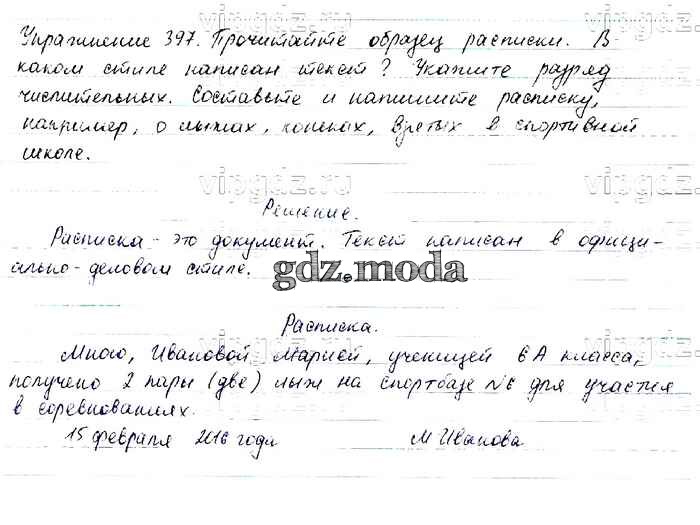 vipgdz.ru vipgdz.ru
Упражнение 397. Прочитайте образец расписки. В
каком стиле написан текст? Укажите разряд
числительных. Составьте и напишите расписку,
например, о лыжах, коньках, взятых в спортивной
школе.
vipgdz.ru vipgdz.ru
Решение.
Расписка - это документ. Текст написан в офици-
ально-деловом стиле.
gdz.moda
Расписка.
vipgdz.ru vipgdz.ru
Мною, Ивановой Марией, учащейся 6 А класса,
получено 2 пары (две) лыж на спортбазе №6 для участия
в соревнованиях.
15 февраля 2016 года М Иванова